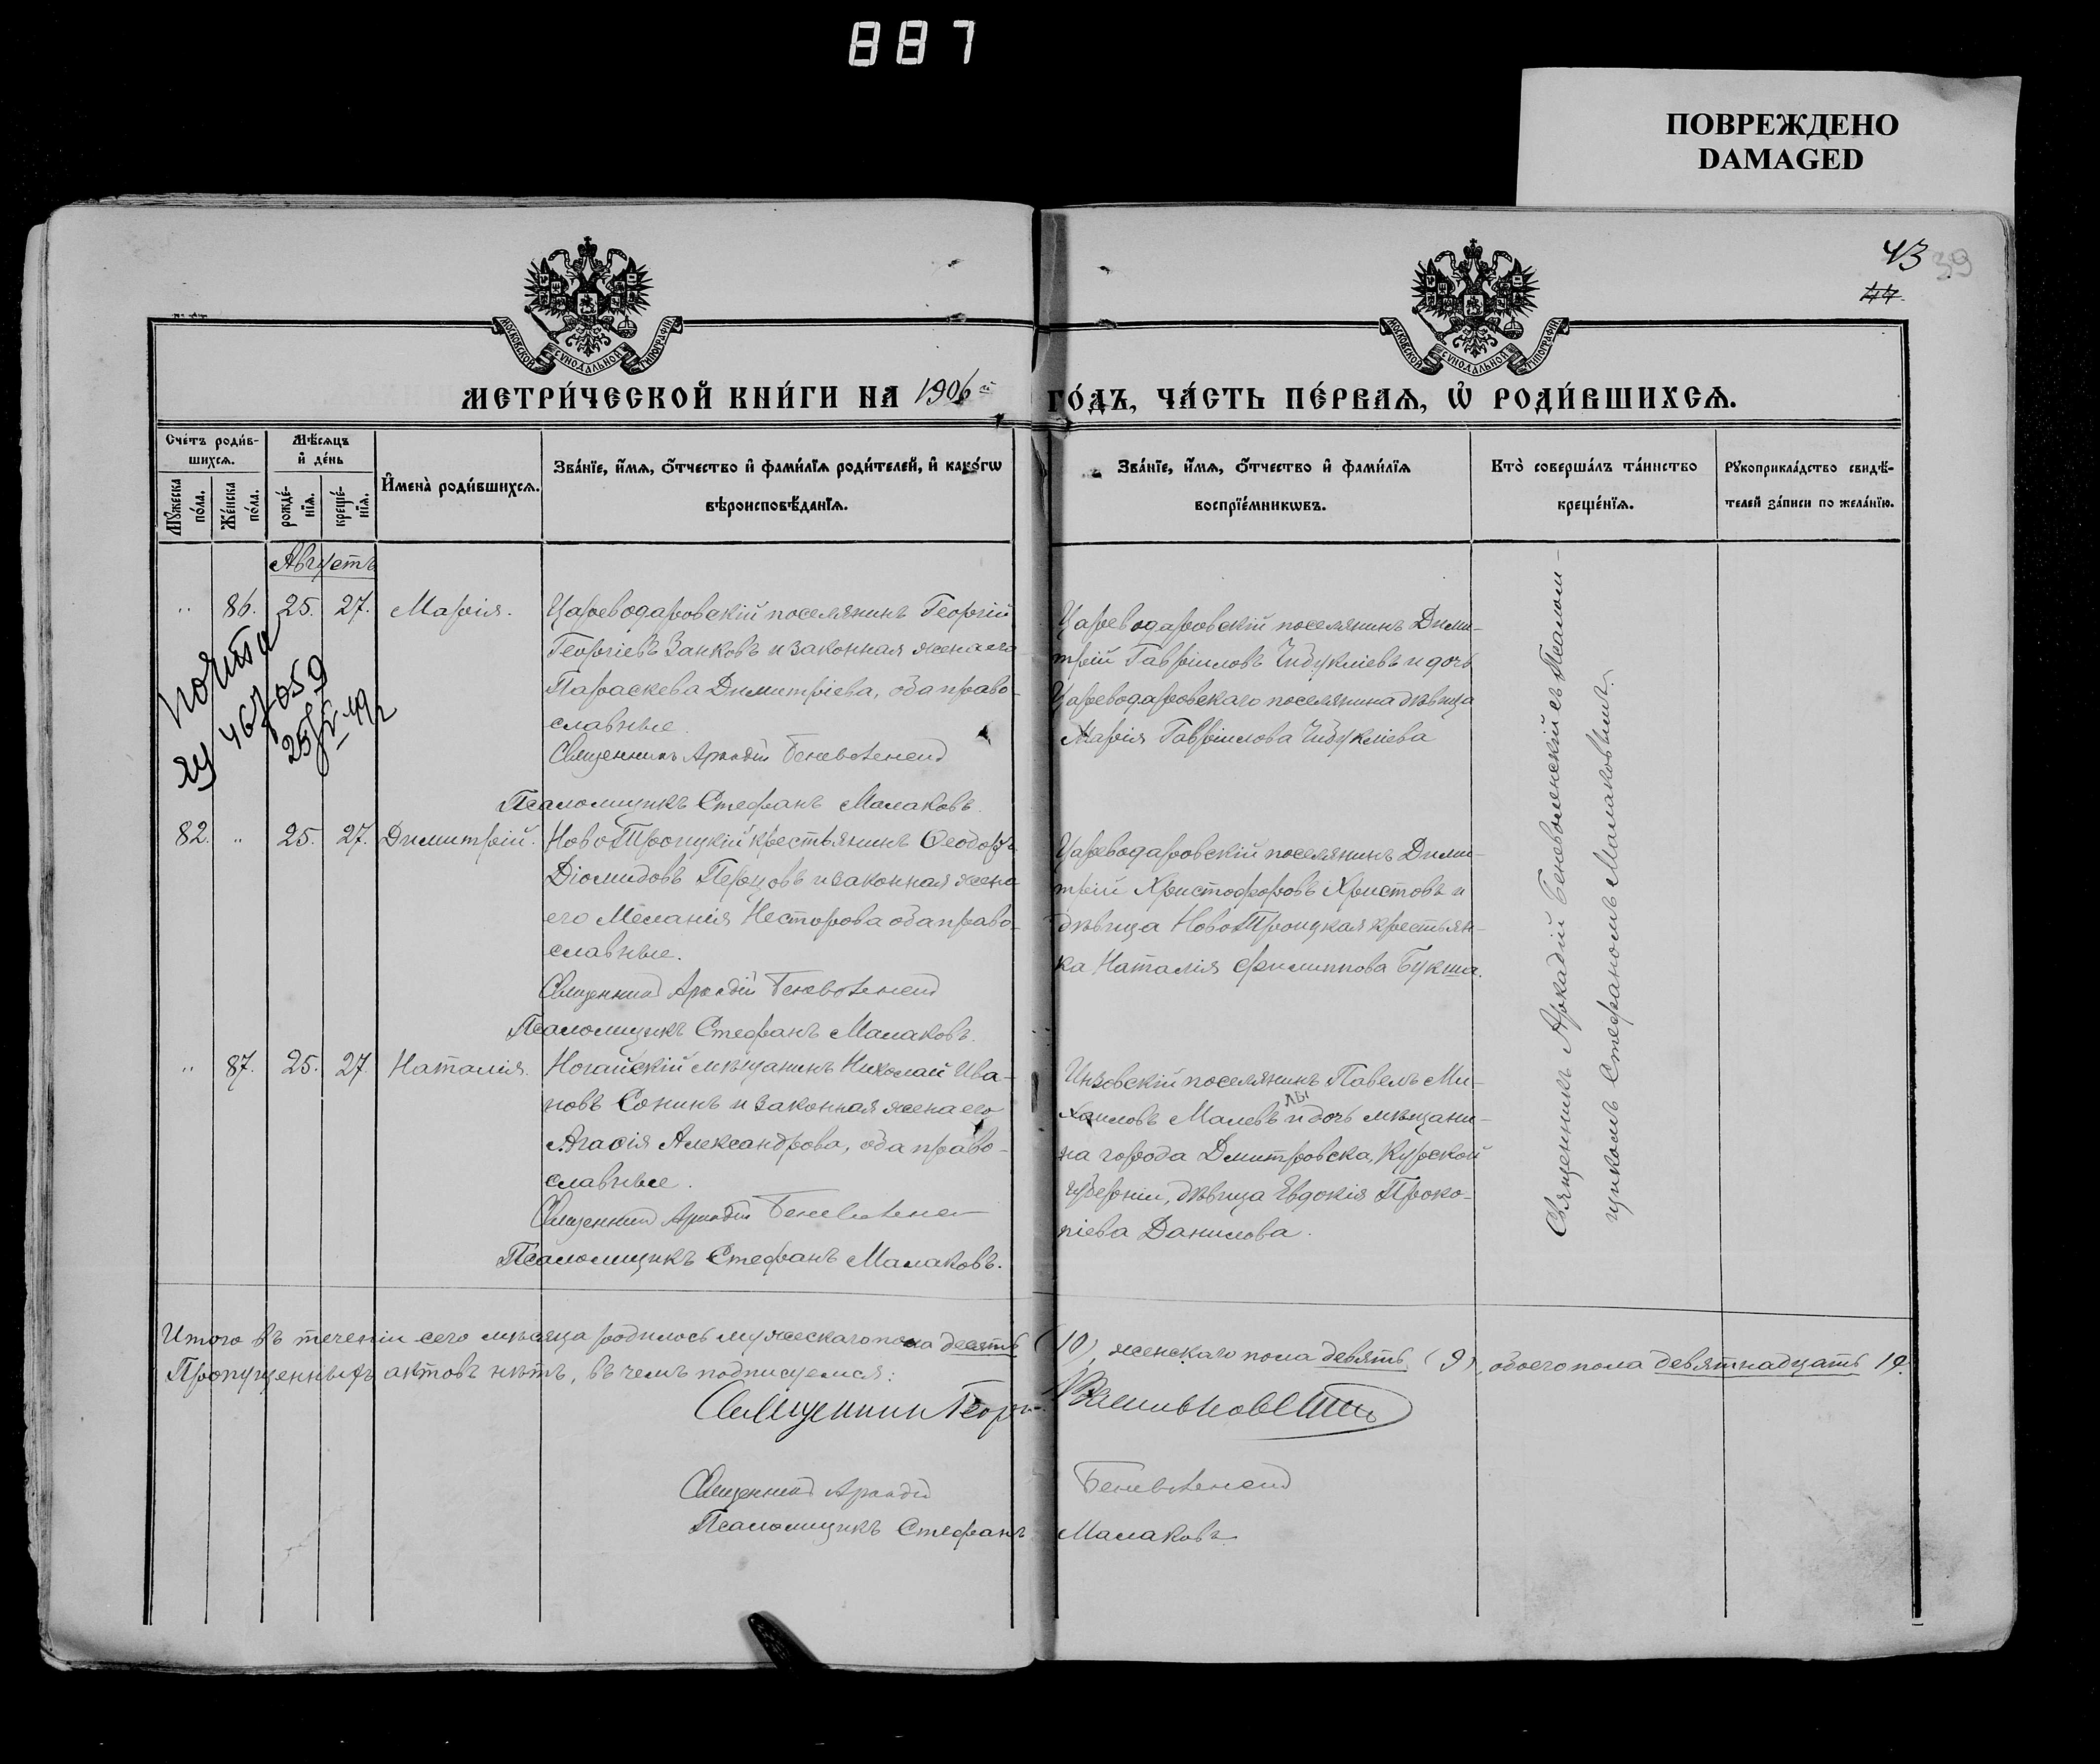 887
ПОВРЕЖДЕНО
DAMAGED
43 39
44.
МОСКОВСКОЙ СѴНОДАЛЬНОЙ ТИПОГРАФІИ
МОСКОВСКОЙ СѴНОДАЛЬНОЙ ТИПОГРАФІИ
МЕТРИ́ЧЕСКОЙ КНИ́ГИ НА 1906й ГО́ДЪ, ЧА́СТЬ ПЕ́РВАѦ, Ѡ҆ РОДИ́ВШИХСѦ.
Сче́тъ роди́в-
шихсѧ.
Мꙋ́жеска по́ла.
Же́нска по́ла.
Мѣ́сѧцъ
и҆ де́нь
рожде́-
нїѧ.
креще́-
нїѧ.
И҆мена̀ роди́вшихсѧ.
Зва́нїе, и҆́мѧ, ѻ҆́тчество и҆ фами́лїѧ роди́телей, и҆ како́гѡ
вѣроисповѣ́данїѧ.
Зва́нїе, и҆́мѧ, ѻ҆́тчество и҆ фами́лїѧ
воспрїе́мникѡвъ.
Кто̀ соверша́лъ та́инство
креще́нїѧ.
Рꙋкоприкла́дство свидѣ́-
телей за́писи по жела́нїю.
Августъ
" 86. 25. 27. Марія.
Цареводаровскій поселянинъ Георгій
Георгіевъ Занковъ и законная жена его
Параскева Димитріева, оба право-
славные.
Священникъ Аркадій Беневоленскій
Псаломщикъ Стефанъ Малаковъ.
Цареводаровскій поселянинъ Дими-
трій Гавріиловъ Чибукліевъ и дочь
Цареводаровскаго поселянина дѣвица
Марія Гавріилова Чибукліева
467059
82. " 25. 27. Димитрій.
Ново Троицкій крестьянинъ Ѳеодоръ
Діомидовъ Перцовъ и законная жена
его Меланія Несторова оба право-
славные.
Священникъ Аркадій Беневоленскій
Псаломщикъ Стефанъ Малаковъ.
Цареводаровскій поселянинъ Дими-
трій Христофоровъ Христовъ и
дѣвица Ново Троицкая крестьян-
ка Наталія Филиппова Букша.
" 87. 25. 27. Наталія.
Ногайскій мѣщанинъ Николай Ива-
новъ Сонинъ и законная жена его
Агафія Александрова, оба право-
славные.
Священникъ Аркадій Беневоленскій
Псаломщикъ Стефанъ Малаковъ.
Инзовскій поселянинъ Павелъ Ми-
хаиловъ Малевъ и дочь мѣщани-
на города Дмитровска, Курской
губерніи, дѣвица Евдокія Проко-
піева Данилова.
Священникъ Аркадій Беневоленскій съ Псалом-
щикомъ Стефаномъ Малаковымъ.
Итого въ теченіи сего мѣсяца родилось мужескаго пола десять (10), женскаго пола девять (9), обоего пола девятнадцать 19.
Пропущенныхъ актовъ нѣтъ, въ чемъ подписуемся:
Священникъ Георгій
Священникъ Аркадій Беневоленскій
Псаломщикъ Стефанъ Малаковъ